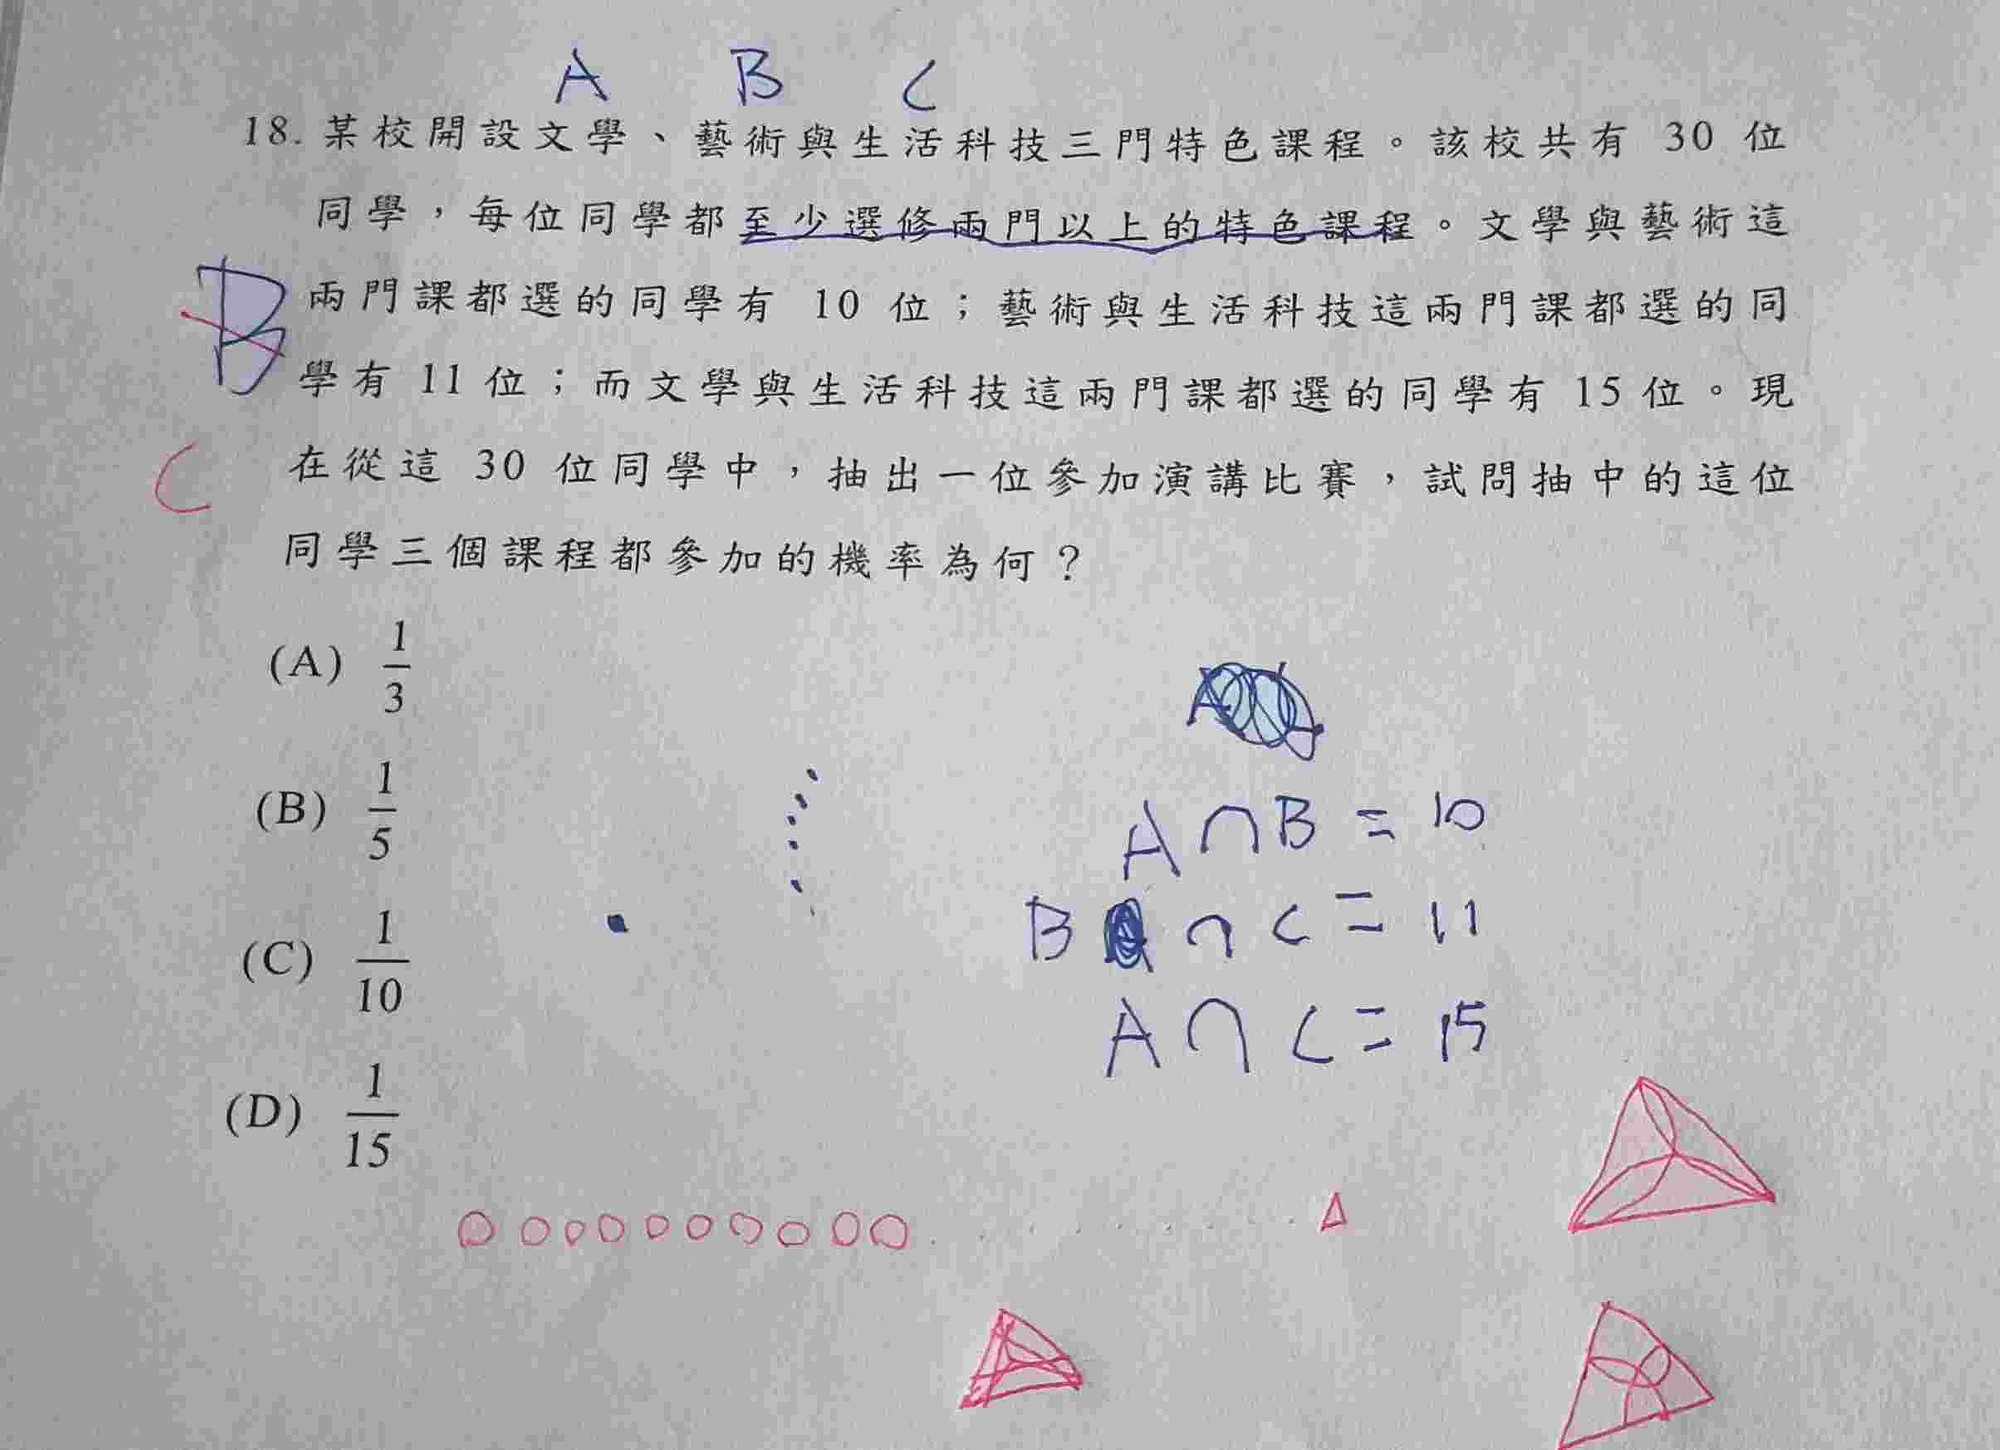 A B C
18. 某校開設文學、藝術與生活科技三門特色課程。該校共有 30 位
同學，每位同學都至少選修兩門以上的特色課程。文學與藝術這
B 兩門課都選的同學有 10 位；藝術與生活科技這兩門課都選的同
學有 11 位；而文學與生活科技這兩門課都選的同學有 15 位。現
C 在從這 30 位同學中，抽出一位參加演講比賽，試問抽中的這位
同學三個課程都參加的機率為何？
(A) 1/3
(B) 1/5
(C) 1/10
(D) 1/15
A∩B = 10
B∩C = 11
A∩C = 15